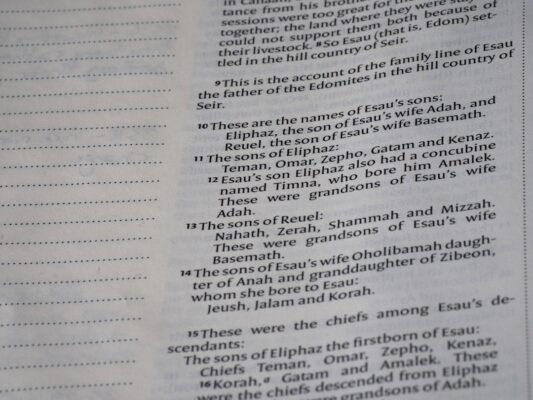 in Canaan,
tance from his
sessions were too great for
together; the land where they were
could not support them both because of
their livestock. 8So Esau (that is, Edom) set-
tled in the hill country of Seir.
9This is the account of the family line of Esau
the father of the Edomites in the hill country of
Seir.
10These are the names of Esau's sons:
Eliphaz, the son of Esau's wife Adah, and
Reuel, the son of Esau's wife Basemath.
11The sons of Eliphaz:
Teman, Omar, Zepho, Gatam and Kenaz.
12Esau's son Eliphaz also had a concubine
named Timna, who bore him Amalek.
These were grandsons of Esau's wife
Adah.
13The sons of Reuel:
Nahath, Zerah, Shammah and Mizzah.
These were grandsons of Esau's wife
Basemath.
14The sons of Esau's wife Oholibamah daugh-
ter of Anah and granddaughter of Zibeon,
whom she bore to Esau:
Jeush, Jalam and Korah.
15These were the chiefs among Esau's de-
scendants:
The sons of Eliphaz the firstborn of Esau:
Chiefs Teman, Omar, Zepho, Kenaz,
16Korah,a Gatam and Amalek. These
were the chiefs descended from Eliphaz
were grandsons of Adah.